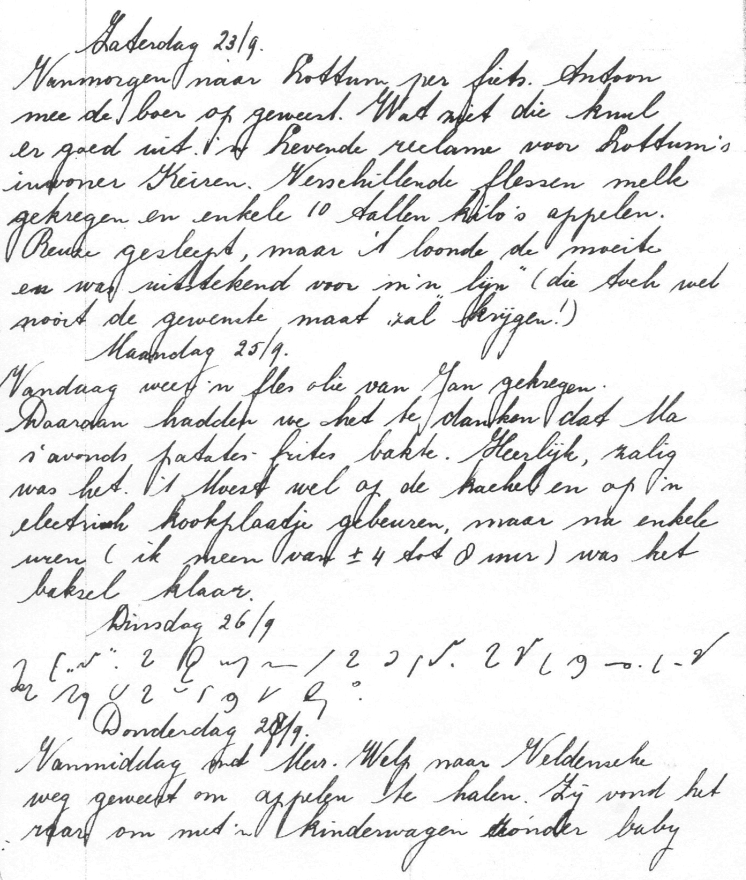 Zaterdag 23/9.
Vanmorgen naar Lottum per fiets. Antoon
mee de boer op geweest. Wat ziet die knul
er goed uit. 'n Levende reclame voor Lottum's
inwoner Keiren. Verschillende flessen melk
gekregen en enkele 10 tallen kilo's appelen.
Reuze gesleept, maar 't loonde de moeite
en was uitstekend voor m'n "lijn" (die toch wel
nooit de gewenste maat zal krijgen!)
Maandag 25/9.
Vandaag weer 'n fles olie van Jan gekregen.
Daaraan hadden we het te danken dat Ma
s'avonds patates-frites bakte. Heerlijk, zalig
was het. 't Moest wel op de kachel en op 'n
electrisch kookplaatje gebeuren, maar na enkele
uren (ik meen van ± 4 tot 8 uur) was het
baksel klaar.
Dinsdag 26/9
Donderdag 28/9.
Vanmiddag met Mevr. Welp naar Veldensche
weg geweest om appelen te halen. Zij vond het
raar om met 'n kinderwagen zónder baby